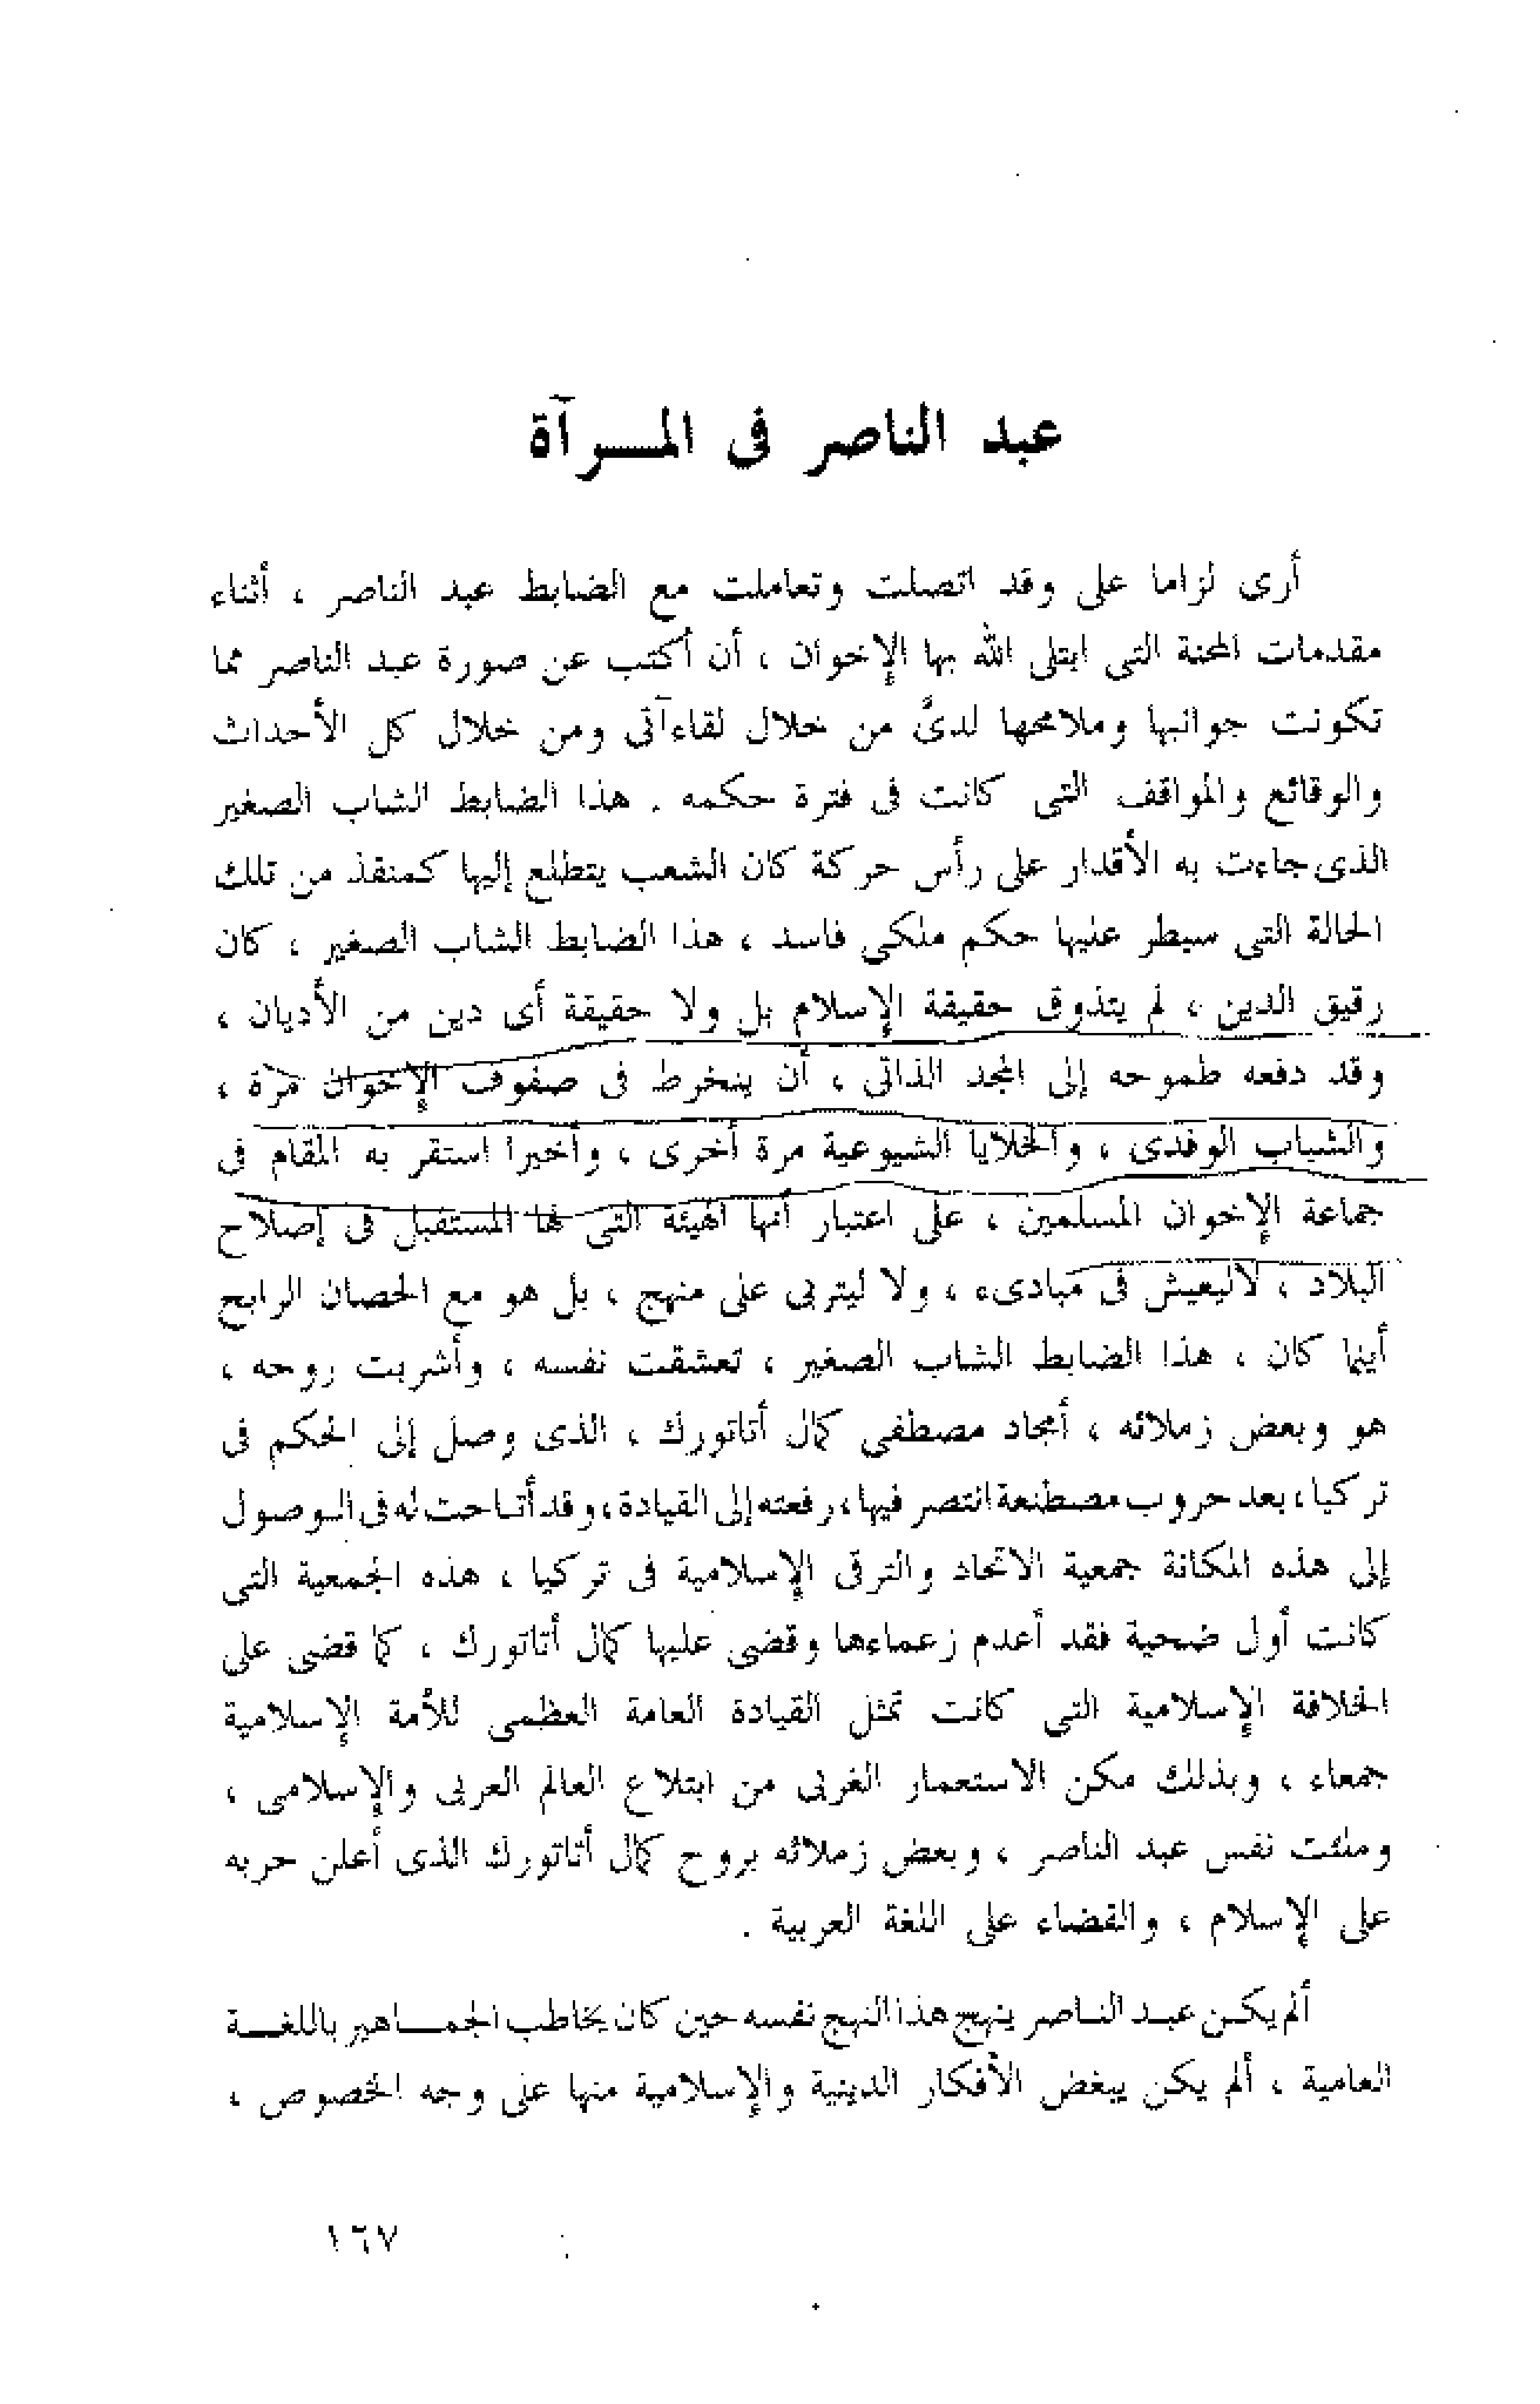 عبد الناصر فى المرآة
أرى لزاما على وقد اتصلت وتعاملت مع الضابط عبد الناصر ، أثناء
مقدمات المحنة التى ابتلى الله بها الإخوان ، أن أكتب عن صورة عبد الناصر مما
تكونت جوانبها وملامحها لدىَّ من خلال لقاءآتى ومن خلال كل الأحداث
والوقائع والمواقف التى كانت فى فترة حكمه . هذا الضابط الشاب الصغير
الذى جاءت به الأقدار على رأس حركة كان الشعب يتطلع إليها كمنقذ من تلك
الحالة التى سيطر عليها حكم ملكى فاسد ، هذا الضابط الشاب الصغير ، كان
رقيق الدين ، لم يتذوق حقيقة الإسلام بل ولا حقيقة أى دين من الأديان ،
وقد دفعه طموحه إلى المجد الذاتى ، أن ينخرط فى صفوف الإخوان مرة ،
والشباب الوفدى ، والخلايا الشيوعية مرة أخرى ، وأخيرا استقر به المقام فى
جماعة الإخوان المسلمين ، على اعتبار أنها الهيئه التى لها المستقبل فى إصلاح
البلاد ، لاليعيش فى مبادىء ، ولا ليتربى على منهج ، بل هو مع الحصان الرابح
أينما كان ، هذا الضابط الشاب الصغير ، تعشقت نفسه ، وأشربت روحه ،
هو وبعض زملائه ، أمجاد مصطفى كمال أتاتورك ، الذى وصل إلى الحكم فى
تركيا ، بعد حروب مصطنعة انتصر فيها ، رفعته إلى القيادة ، وقد أتاحت له فى الوصول
إلى هذه المكانة جمعية الاتحاد والترقى الإسلامية فى تركيا ، هذه الجمعية التى
كانت أول ضحية فقد أعدم زعماءها وقضى عليها كمال أتاتورك ، كما قضى على
الخلافة الإسلامية التى كانت تمثل القيادة العامة العظمى للأمة الإسلامية
جمعاء ، وبذلك مكن الاستعمار الغربى من ابتلاع العالم العربى والإسلامى ،
وملئت نفس عبد الناصر ، وبعض زملائه بروح كمال أتاتورك الذى أعلن حربه
على الإسلام ، والقضاء على اللغة العربية .
ألم يكن عبد الناصر ينهج هذا النهج نفسه حين كان يخاطب الجماهير باللغة
العامية ، ألم يكن يبغض الأفكار الدينية والإسلامية منها على وجه الخصوص ،
١٦٧